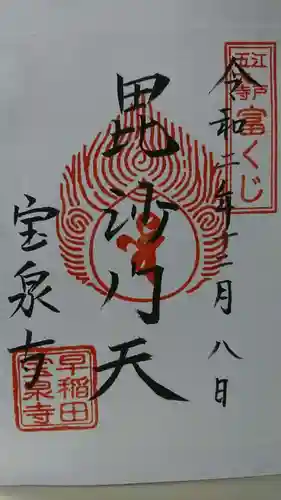 江戸
五寺
富くじ
令和二年十二月八日
毘沙門天
宝泉寺
早稲田
宝泉寺